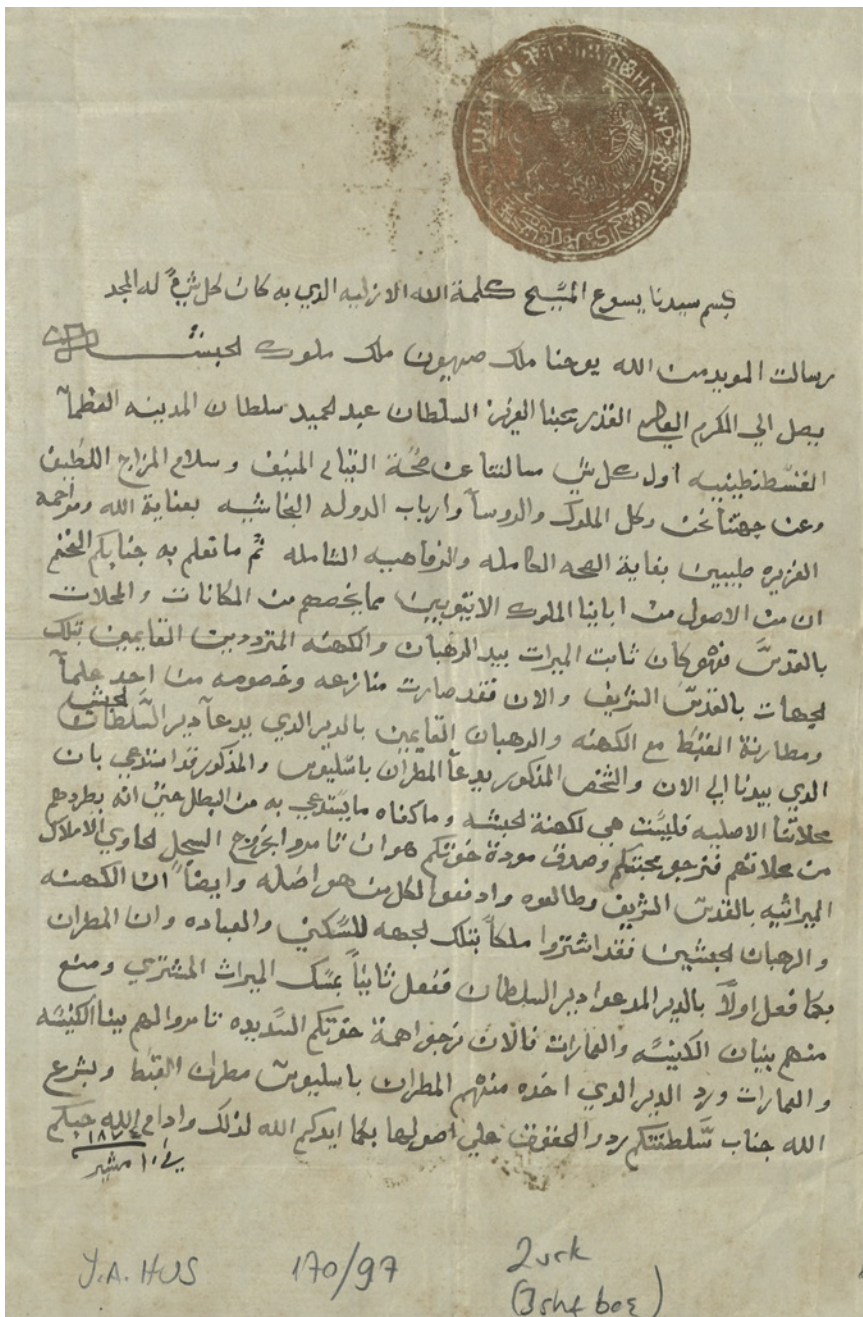 بسم سيدنا يسوع المسيح كلمة الاله الازليه الذي به كان كل شيءً له المجد
رسالت المويد من الله يوحنا ملك صهيون ملك ملوك لحبشـــــه
يصل الي المكرم القدير محبنا العزيز السلطان عبد لحميد سلطان المدينه العظمآ
القسطنطينيه اول كل شي سالتنا عن صحة القيام المنيف وسلام المزاج اللطيف
وعن جهتنا نحن وكل الملوك والروسآ وارباب الدوله النجاشيه بعناية الله ومراحمه
الغزيره طيبين بغاية الصحه الكامله والرفاهيه الشامله ثم ما تعلم به جنابكم الفخم
ان من الاصول من اباينا الملوك الاتيوبيين مما يخصهم من المكانات والمحلات
بالقدس فهو كان ثابت الميرات بيد الرهبان والكهنه المترددين القايمين بتلك
لجهات بالقدس الشريف والان فقد صارت منازعه وخصومه من احد علمآ
ومطارنة القبط مع الكهنه والرهبان لحبش القايمين بالدير الذي يدعآ دير السلطان
الذي بيدنا الي الان والشخص المذكور يدعآ المطران باسليوس والمذكور قد استدعي بان
محلاتنا الاصليه فليست هي لكهنة لحبشه وما كفاه ما يستدعي به من البطل حتي انه يطردهم
من محلاتهم فنرجو محبتكم وصدق مودة خوتكم هو ان تامروا بخروج السجل لحاوي الاملاك
الميراثيه بالقدس الشريف وطالعوه وادفعوا لكل من هو اصله وايضاً ان الكهنه
والرهبان لحبشيين فقد اشتروا ملكاً بتلك لجهه للسكني والعباده وان المطران
بما فعل اولاً بالدير المدعوا دير السلطان ففعل ثانياً بمسك الميراث المشتري ومنع
منهم بنيان الكنيسه والعمارات فالان نرجوا همة خوتكم الشديده تامروا لهم ببنا الكنيسه
والعمارات ورد الدير الذي اخده منهم المطران باسليوس مطران القبط ويشرع
الله جناب سلطنتكم برد الحقوق علي اصولها بما ايدكم الله لذلك وادام الله حبكم
في ١٠ امشير
Y.A. HUS 170/97